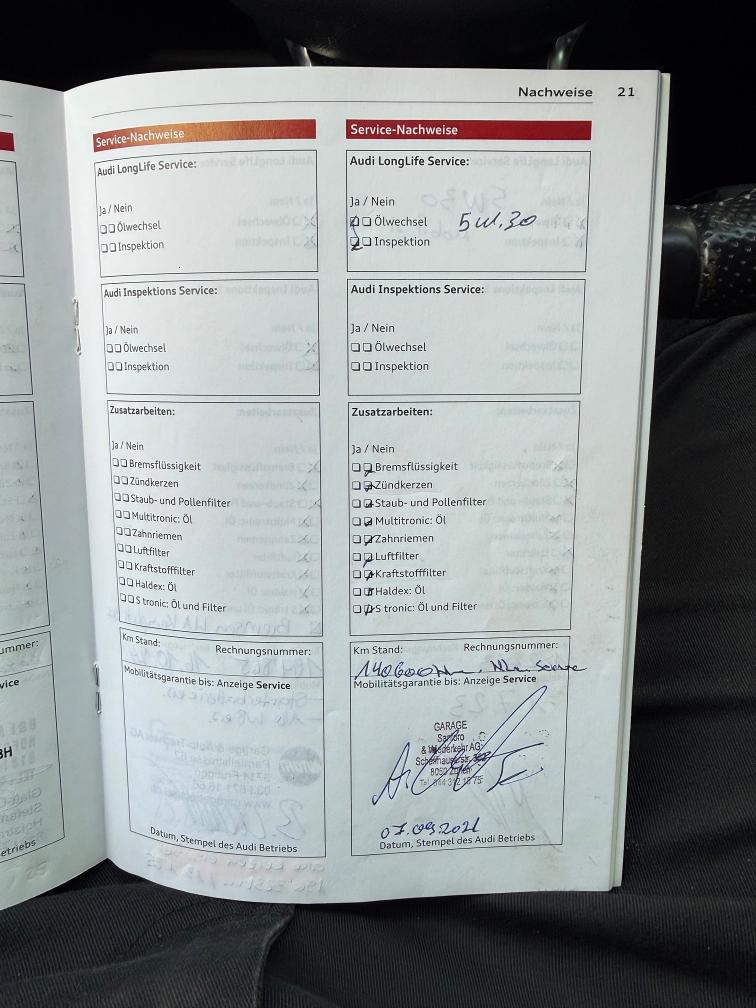 Nachweise 21
Service-Nachweise
Audi LongLife Service:
Ja / Nein
Ölwechsel
Inspektion
Audi Inspektions Service:
Ja / Nein
Ölwechsel
Inspektion
Zusatzarbeiten:
Ja / Nein
Bremsflüssigkeit
Zündkerzen
Staub- und Pollenfilter
Multitronic: Öl
Zahnriemen
Luftfilter
Kraftstofffilter
Haldex: Öl
S tronic: Öl und Filter
Km Stand: Rechnungsnummer:
Mobilitätsgarantie bis: Anzeige Service
Datum, Stempel des Audi Betriebs
Service-Nachweise
Audi LongLife Service:
Ja / Nein
Ölwechsel 5W.30
Inspektion
Audi Inspektions Service:
Ja / Nein
Ölwechsel
Inspektion
Zusatzarbeiten:
Ja / Nein
Bremsflüssigkeit
Zündkerzen
Staub- und Pollenfilter
Multitronic: Öl
Zahnriemen
Luftfilter
Kraftstofffilter
Haldex: Öl
S tronic: Öl und Filter
Km Stand: Rechnungsnummer:
140600
Mobilitätsgarantie bis: Anzeige Service
GARAGE
& Wiederkehr AG
8050 Zürich
07.09.2021
Datum, Stempel des Audi Betriebs